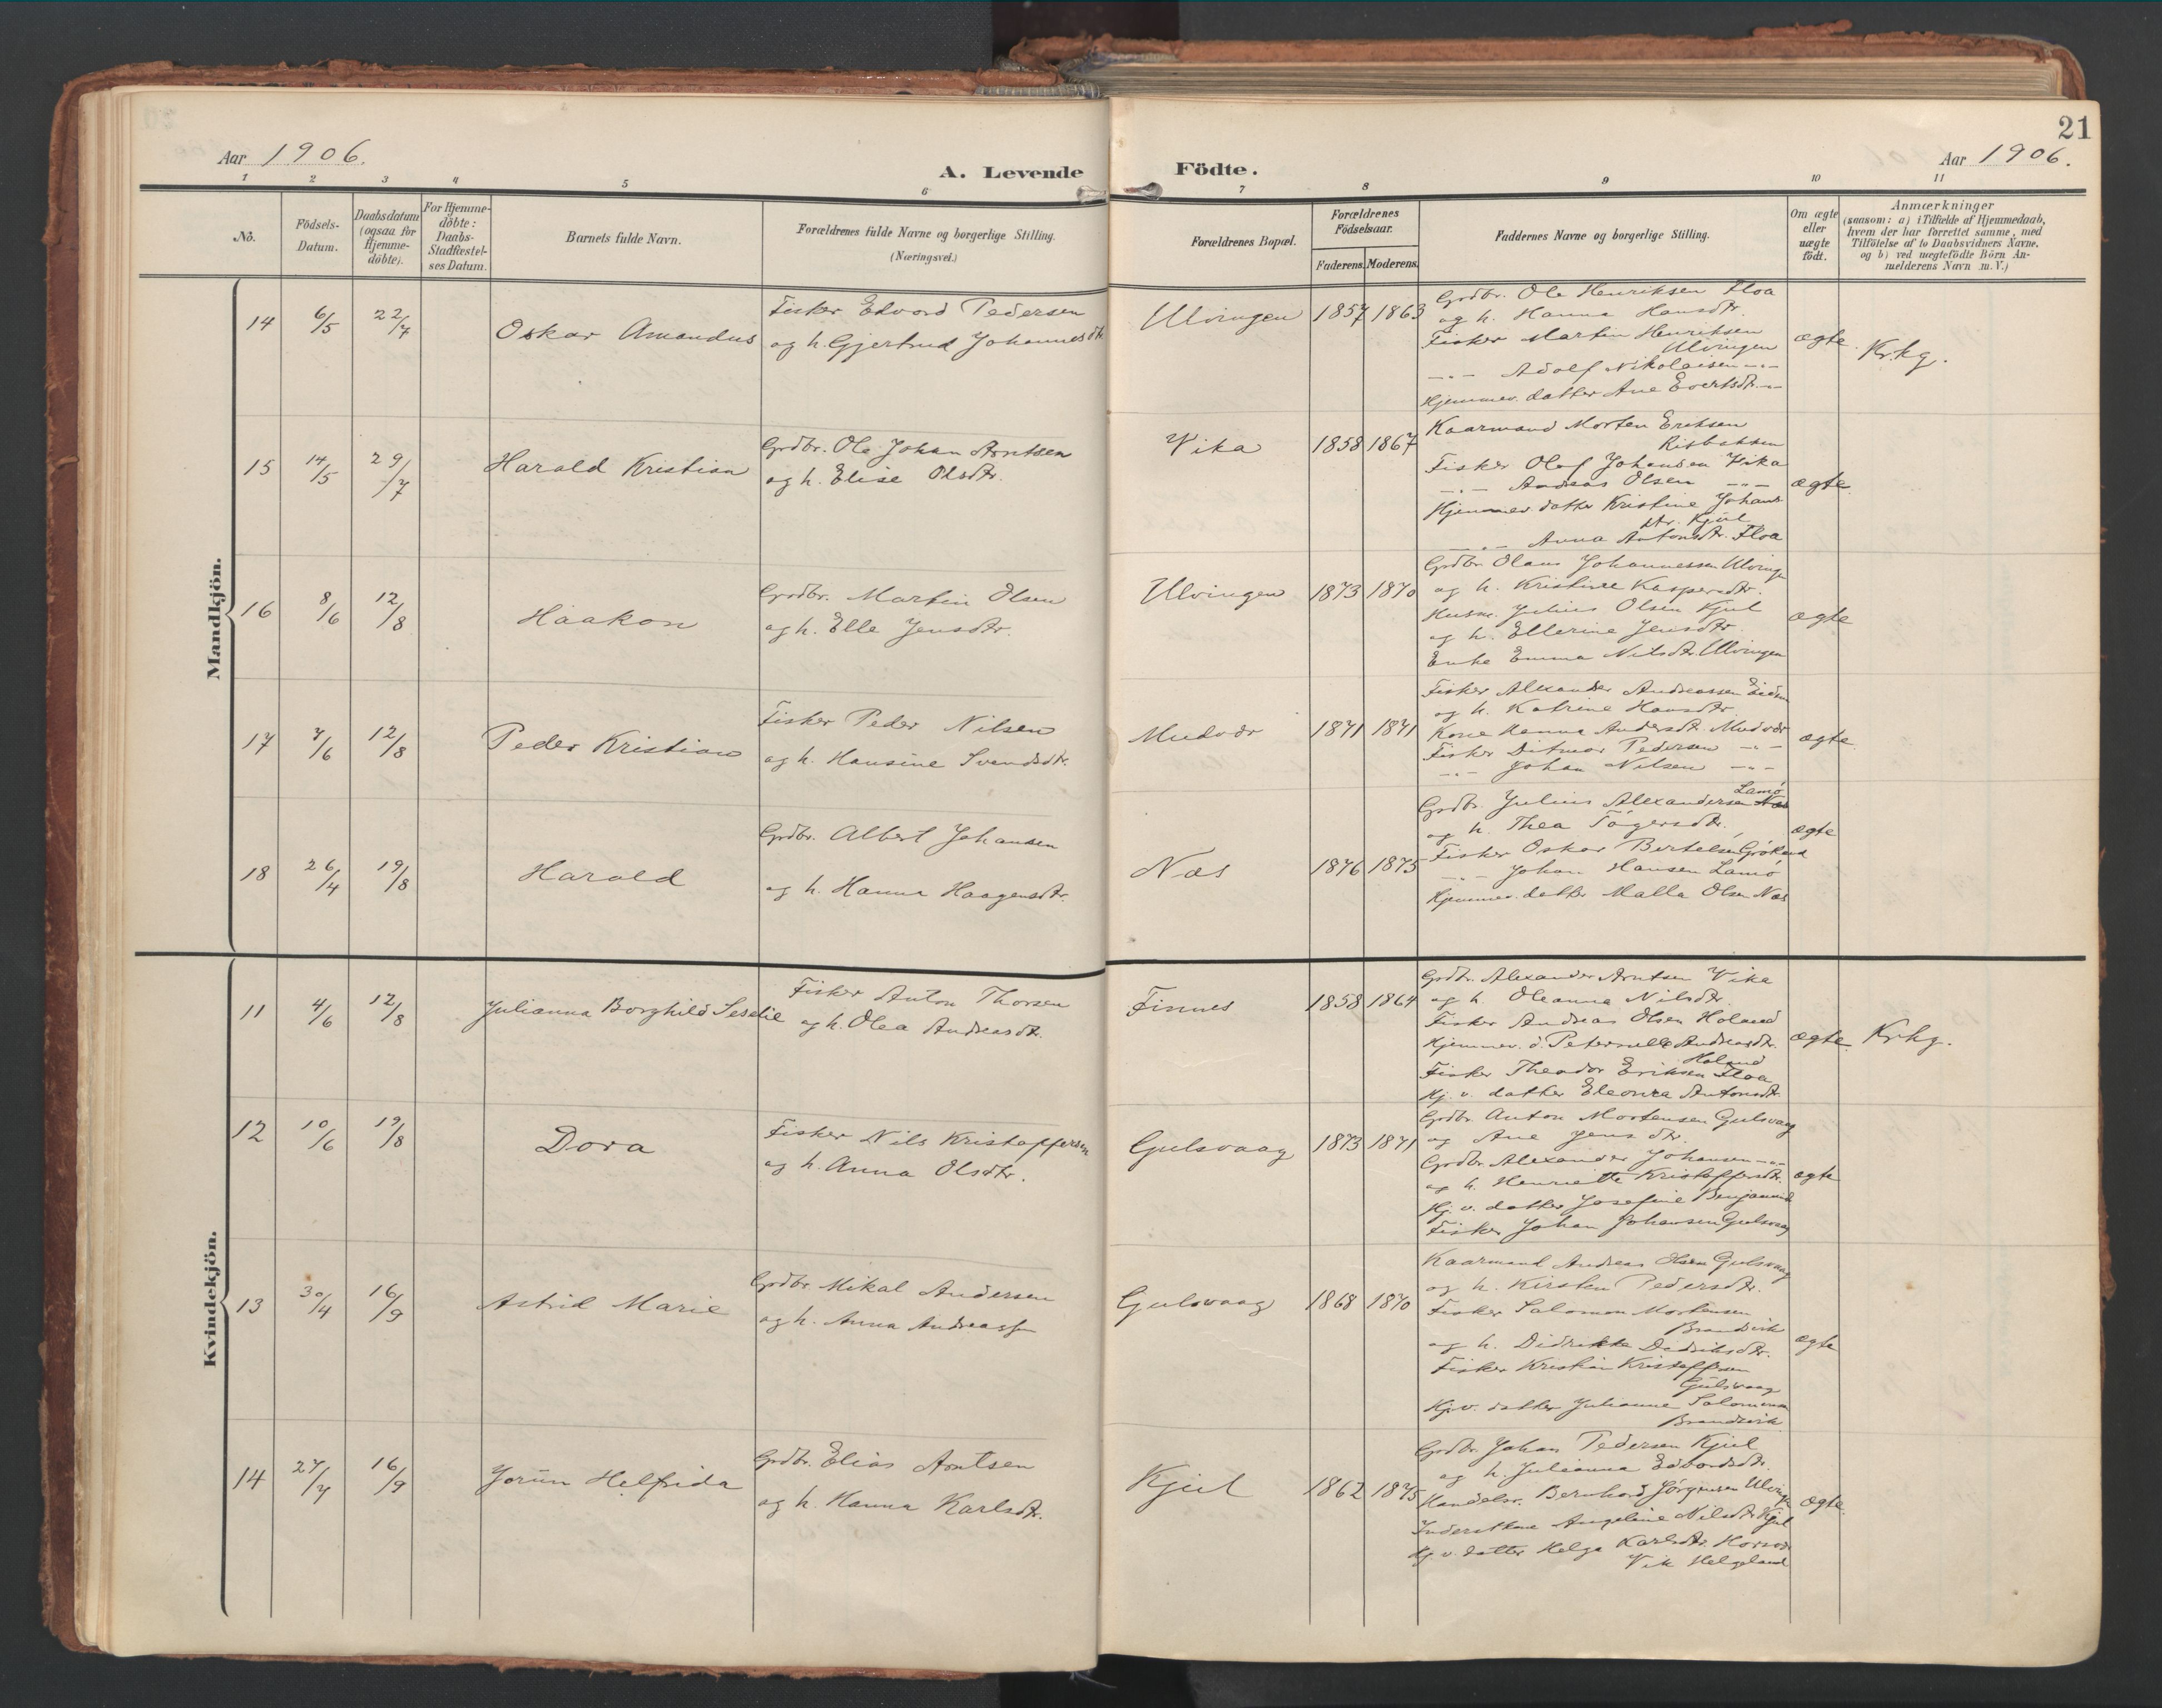 21
Aar 1906.
A. Levende Födte.
Aar 1906.
1 2 3 4 5 6 7 8 9 10 11
No.
Födsels-Datum.
Daabsdatum (ogsaa for Hjemme-döbte).
For Hjemme-döbte: Daabs-Stadfæstel-ses Datum.
Barnets fulde Navn.
Forældrenes fulde Navne og borgerlige Stilling.
(Næringsvei.)
Forældrenes Bopæl.
Forældrenes Födselsaar.
Faderens. Moderens.
Faddernes Navne og borgerlige Stilling.
Om ægte eller uægte födt.
Anmærkninger
(saasom: a) i Tilfælde af Hjemmedaab,
hvem der har forrettet samme, med
Tilföielse af to Daabsvidners Navne,
og b) ved uægtefödte Börn An-
melderens Navn m.V.)
Mandkjön.
14 6/5 22/7 Oskar Amandus
Fisker Edvard Pedersen
og h. Gjertrud Johannesdtr.
Ulvingen 1857 1863
Grdbr. Ole Henriksen Floa
og h. Hanna Hansdtr.
Fisker Martin Henriksen
Ulvingen
-"- Adolf Nikolaisen -"-
Hjemmev. datter Ane Evertsdtr. -"-
ægte.
Krkg.
15 14/5 29/7 Harald Kristian
Grdbr. Ole Johan Arntsen
og h. Elise Olsdtr.
Vika 1858 1867
Kaarmand Morten Eriksen
Risbakken
Fisker Olaf Johansen Vika
-"- Andreas Olsen -"-
Hjemmev. datter Kristine Johans
dtr. Kjul
-"- Anna Antonsdtr. Floa
ægte.
16 8/6 12/8 Haakon
Grdbr. Martin Olsen
og h. Elle Jensdtr.
Ulvingen 1873 1870
Grdbr. Olaus Johannessen Ulvingen
og h. Kristine Kaspersdtr.
Husm. Julius Olsen Kjul
og h. Ellerine Jensdtr.
Enke Emma Nilsdtr. Ulvingen
ægte
17 7/6 12/8 Peder Kristian
Fisker Peder Nilsen
og h. Hansine Svendsdtr.
Mudvær 1871 1871
Fisker Alexander Andreassen
og h. Katrine Hansdtr.
Kone Hanna Andersdtr. Mudvær
Fisker Ditmar Pedersen -"-
-"- Johan Nilsen -"-
ægte.
18 26/4 19/8 Harald
Grdbr. Albert Johansen
og h. Hanna Haagensdtr.
Næs 1876 1875
Lamø
Grdbr. Julius Alexandersen Næs
og h. Thea Tøgersdtr.
Fisker Oskar Bertelsen
-"- Johan Hansen Lamø
Hjemmev. datter Malla Olsen Næs
ægte
Kvindekjön.
11 4/6 12/8 Julianna Borghild Seselie
Fisker Anton Thorsen
og h. Olea Andreasdtr.
Finnes 1858 1864
Grdbr. Alexander Arntsen Vika
og h. Oleanna Nilsdtr.
Fisker Andreas Olsen Holand
Hjemmev. d. Peternelle Andreasdtr.
Holand
Fisker Theodor Eriksen Floa
Hj. v. datter Eleonra Antonsdtr.
ægte.
Krkg.
12 10/6 19/8 Dora
Fisker Nils Kristoffersen
og h. Anna Olsdtr.
Gulsvaag 1873 1871
Grdbr. Anton Mortensen Gulsvaag
og Ane Jensdtr.
Grdbr. Alexander Johansen -"-
og h. Henriette Kristoffersdtr.
Hj. v. datter Josefine Benjaminsd
Fisker Johan Johansen Gulsvaag
ægte
13 30/4 16/9 Astrid Marie
Grdbr. Mikal Andersen
og h. Anna Andreassen
Gulsvaag 1868 1870
Kaarmand Andreas Olsen Gulsvaag
og h. Kirsten Pedersdtr.
Fisker Salomon Mortensen
Brandvik
og h. Didrikke Didriksdtr.
Fisker Kristian Kristoffersen
Gulsvaag
Hj. v. datter Julianne Salomonsen
Brandvik
ægte
14 27/7 16/9 Jorun Helfrida
Grdbr. Elias Arntsen
og h. Hanna Karlsdtr.
Kjul 1862 1875
Grdbr. Johan Pedersen Kjul
og h. Julianna Edvardsdtr.
Handelsr. Bernhard Jörgensen Ulvingen
Angeline Nilsdtr. Kjul
Hj. v. datter Helga Karlsdtr.
Vik Helgeland
ægte.